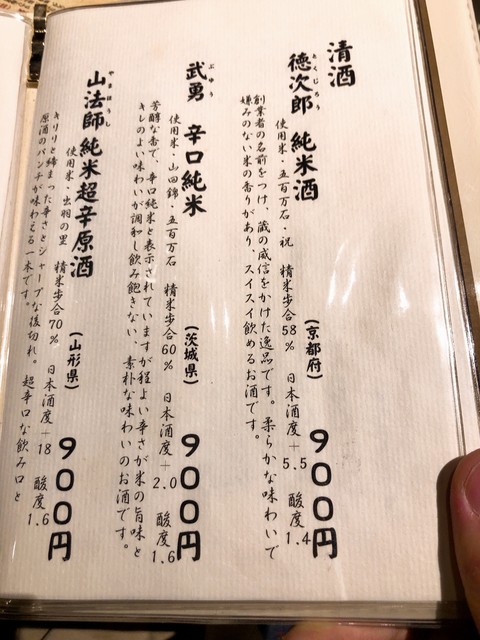 清酒
とくじろう
徳次郎 純米酒 (京都府) 900円
使用米・五百万石・祝 精米歩合58% 日本酒度+5.5 酸度1.4
創業者の名前をつけ、蔵の威信をかけた逸品です。柔らかな味わいで
嫌みのない米の香りがあり、スイスイ飲めるお酒です。
ぶゆう
武勇 辛口純米 (茨城県) 900円
使用米・山田錦・五百万石 精米歩合60% 日本酒度+2.0 酸度1.6
芳醇な香で、辛口純米と表示されていますが程よい辛さが米の旨味と
キレのよい味わいが調和し飲み飽きない、素朴な味わいのお酒です。
やまほうし
山法師 純米超辛原酒 (山形県) 900円
使用米・出羽の里 精米歩合70% 日本酒度+18 酸度1.6
キリリと締まった辛さとシャープな後切れ。超辛口な飲み口と
原酒のパンチが味わえる一本です。